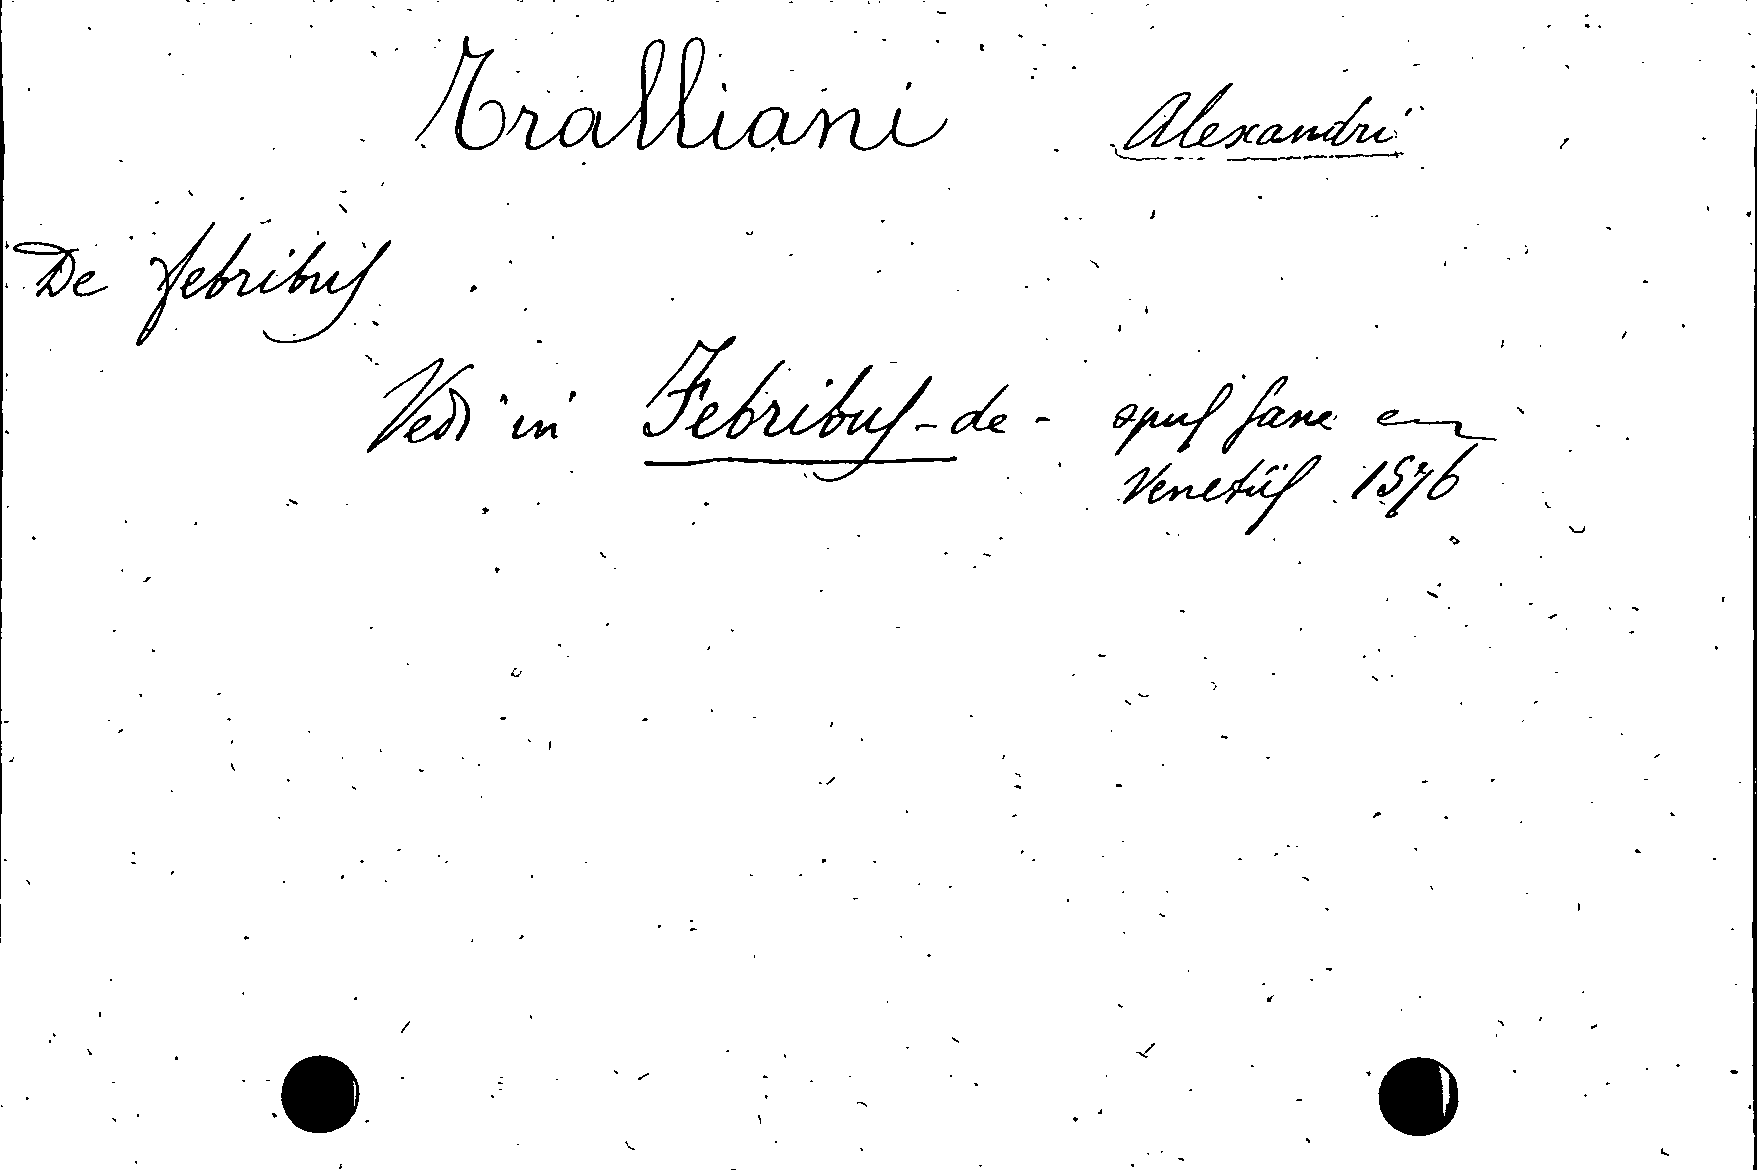 Tralliani Alexandri
De febribus
Vedi in Febribus - de - opus sane
Venetiis 1576